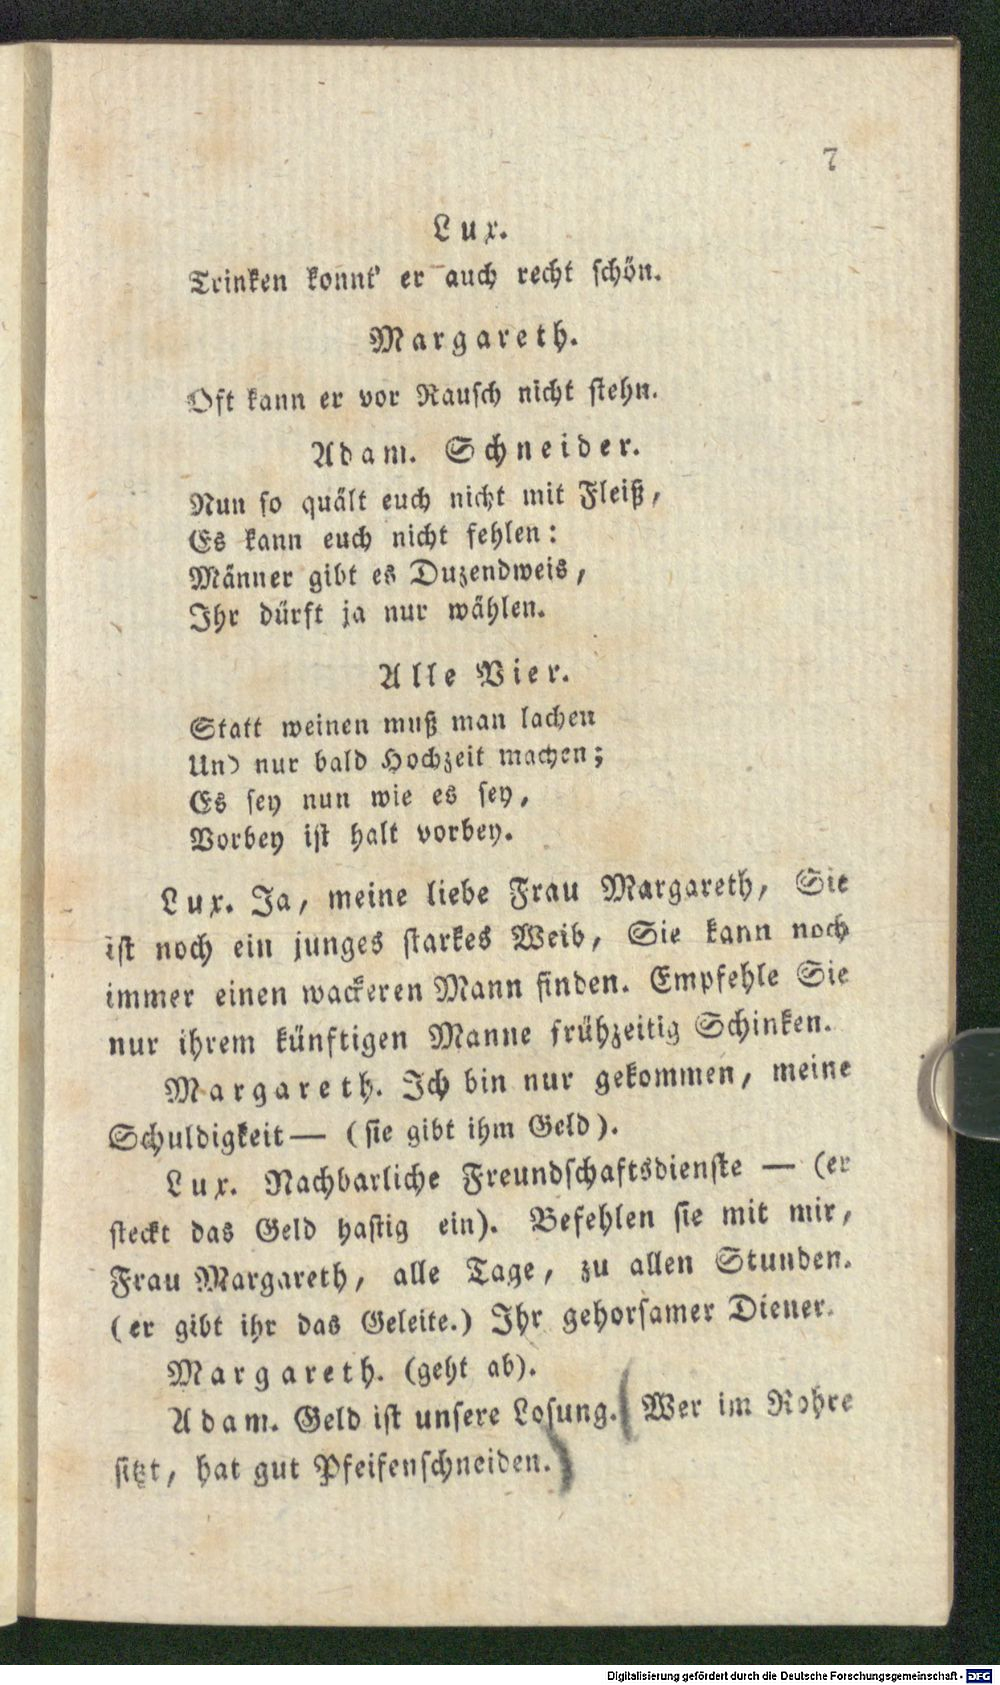 7
Lux.
Trinken konnt' er auch recht schön.
Margareth.
Oft kann er vor Rausch nicht stehn.
Adam. Schneider.
Nun so quält euch nicht mit Fleiß,
Es kann euch nicht fehlen:
Männer gibt es Duzendweis,
Ihr dürft ja nur wählen.
Alle Vier.
Statt weinen muß man lachen
Und nur bald Hochzeit machen;
Es sey nun wie es sey,
Vorbey ist halt vorbey.
Lux. Ja, meine liebe Frau Margareth, Sie
ist noch ein junges starkes Weib, Sie kann noch
immer einen wackeren Mann finden. Empfehle Sie
nur ihrem künftigen Manne frühzeitig Schinken.
Margareth. Ich bin nur gekommen, meine
Schuldigkeit — (sie gibt ihm Geld).
Lux. Nachbarliche Freundschaftsdienste — (er
steckt das Geld hastig ein). Befehlen sie mit mir,
Frau Margareth, alle Tage, zu allen Stunden.
(er gibt ihr das Geleite.) Ihr gehorsamer Diener.
Margareth. (geht ab).
Adam. Geld ist unsere Losung. (Wer im Rohre
sitzt, hat gut Pfeifenschneiden.)
Digitalisierung gefördert durch die Deutsche Forschungsgemeinschaft - DFG